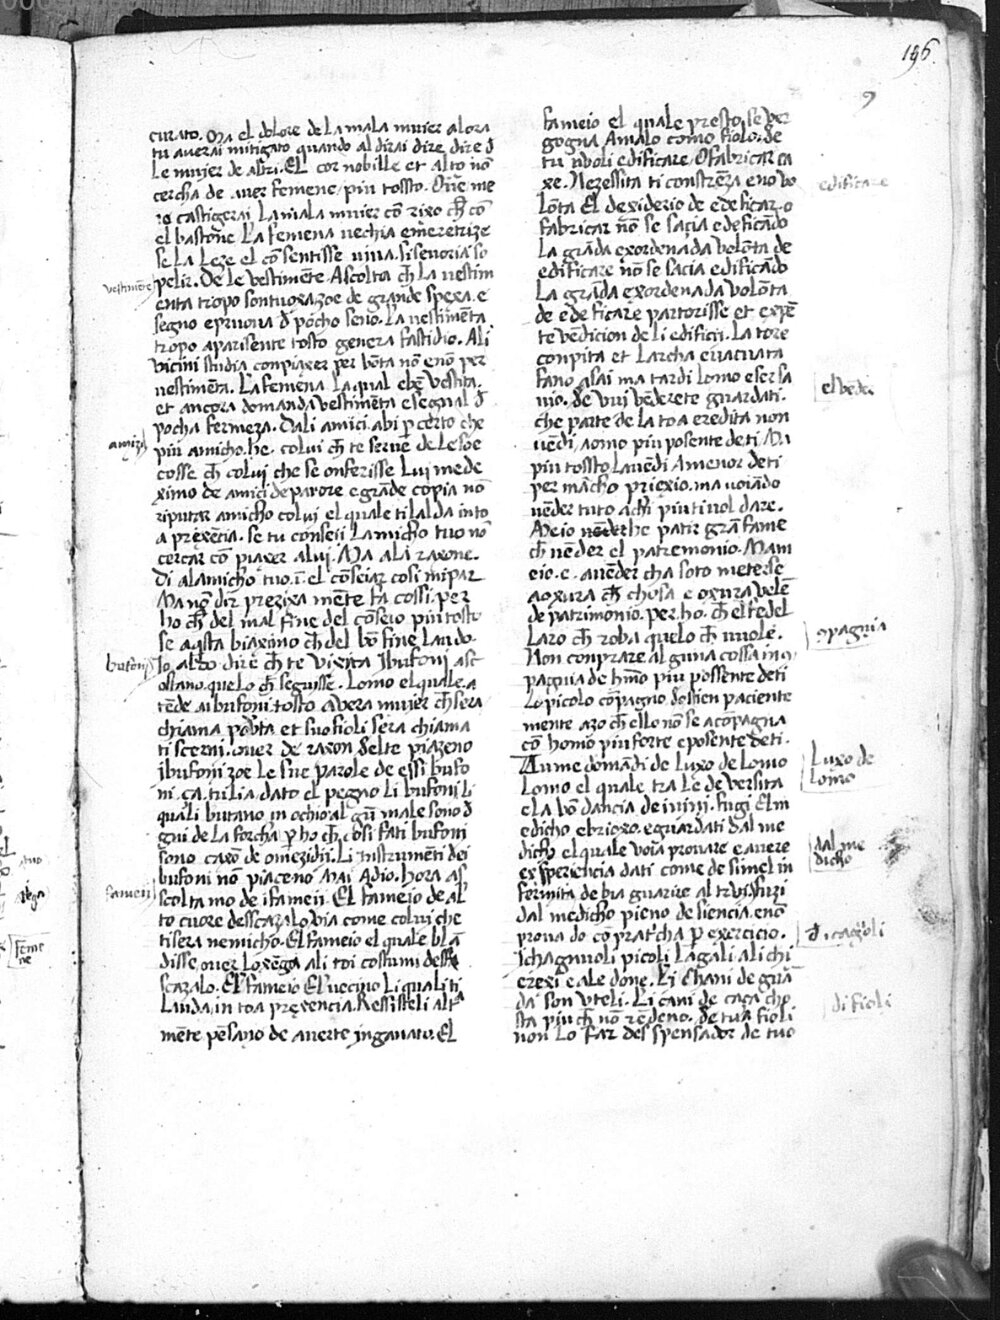 196
9
curato. Ma el dolore de la mala muier alora
tu averai mitigato quando aldirai dire dire đ
le muier de altri. El cor nobille et alto nō
cercha de aver femene piu tosto. Ouē me
io castigerai la mala muier cō rixo ch̄ cō
el bastone La femena vechia emeretrize
se la leze el cōsentisse viva. si seuoria so
vestimēte
pelir. De le vestimēte Ascolta ch̄ la vestim
enta tropo sontuoxa zoe de grande spexa. e
segno e pruova đ pocho seno. La vestimēta
tropo aparisente tosto genera fastidio. Ali
vicini studia conpiaxer per bōta nō enō per
vestimēta. La femena la qual ebē vestita.
et ancora domanda vestimēta e segnal đ
pocha fermeza. Dali amici abi p certo che
amizi
piu amicho. he. colui ch̄ te servē de le soe
cosse ch̄ colui che se onferisse lui mede
ximo de amici de parore e grāde copia nō
riputar amicho colui el quale ti lalda in to
a prexēcia. se tu conseii lamicho tuo nō
cercar cō piaxer alui. Ma ala raxone.
Di alamicho tuo. ī. el cōseiar cosi mi par
Ma nō dir prezixa mēte fa cossi. per
ho ch̄ del mal fine del cōseio piu tosto
se aqsta biaximo ch̄ del bō fine laudo.
bufoni
Io aldo dire ch̄ te vixita ibufoni asc
oltano quelo ch̄ seguisse. Lomo el quale. a
tēde ai bufoni tosto avera muier ch̄ sera
chiama povta et suo fioli sera chiama
ti scerni. over de raxon delte piazeno
ibufoni zoe le sue parole de essi bufo
ni. ca. tu lia dato el pegno li bufoni li
quali butano in ochio al gū male sono đ
gni de la forcha p ho ch̄ cosi fati bufoni
sono caxō de omezidii. Li instrumēti dei
bufoni nō piaceno mai adio. hora as
fameii
scolta mo de ifameii. El fameio de al
to cuore desscazalo via come colui che
ti sera nemicho. El fameio el quale bl ā
disse over loxēga ali toi costumi desse
scazalo. El fameio el vecino li quali ti
lauda in toa prexencia. Ressisteli alt
mēte pēsano de averte inganato. El
fameio el quale presto se ver
gogna Amalo como fiolo. de
tu vvoli edificare. O fabricar ca
edificare
xe. Nezessita ti constrēza eno vo
lōta El dexiderio de edeficar. o
fabricar nō se sacia edeficādo
La grāda exordenada volōta de
edificare nō se sacia edificādo
La grāda exordenada volōta
de edeficare partorisse et expē
te vēdicion de li edificii. La tore
conpita et larcha evacvata
fano asai ma tardi lomo eser sa
el vede
vio. Se vui vēderete guardati.
che parte de la toa eredita non
vēdi aomo piu posente de ti. Ma
piu tossto lavēdi amenor de ti
per mācho priexio. ma voiādo
vēder tuto achi piu ti vol dare.
Meio he patir grā fame
ch̄ vēder el patremonio. Mam
eio. e. avēder cha soto meterse
aoxura ch̄ chosa e oxura velē
de patrimonio. per. ho. ch̄ el fedel
laro ch̄ roba quelo ch̄ vuole.
opagnia
Non conprare alguna cossa in co
pagnia de hmō piu possente de ti
Lo picolo cōpagno sostien paciente
mente azo ch̄ ello nō se acōpagna
cō homo piu forte eposente de ti.
Tu me domādi de luxo de lomo
luxo de
lomo
Lomo el quale tra le deversita
ela bō dancia de ivini. fugi El m
edicho ebrioxo. eguardati dal me
dal me
dicho
dicho el quale voia provare e avere
exsperiencia dati come de simel in
fermita de bia guarire altri. fuzi
dal medicho pieno de siencia. enō
prova do cō praticha p exercicio.
đ cagñoli
Ichagnuoli picoli lagali ali chi
erexi e ale done. Li chani de guā
da son vteli. Li cani de caca cho
di fioli
sta piu ch̄ nō rēdeno. de tua fioli
non lo far desspensador de tuo